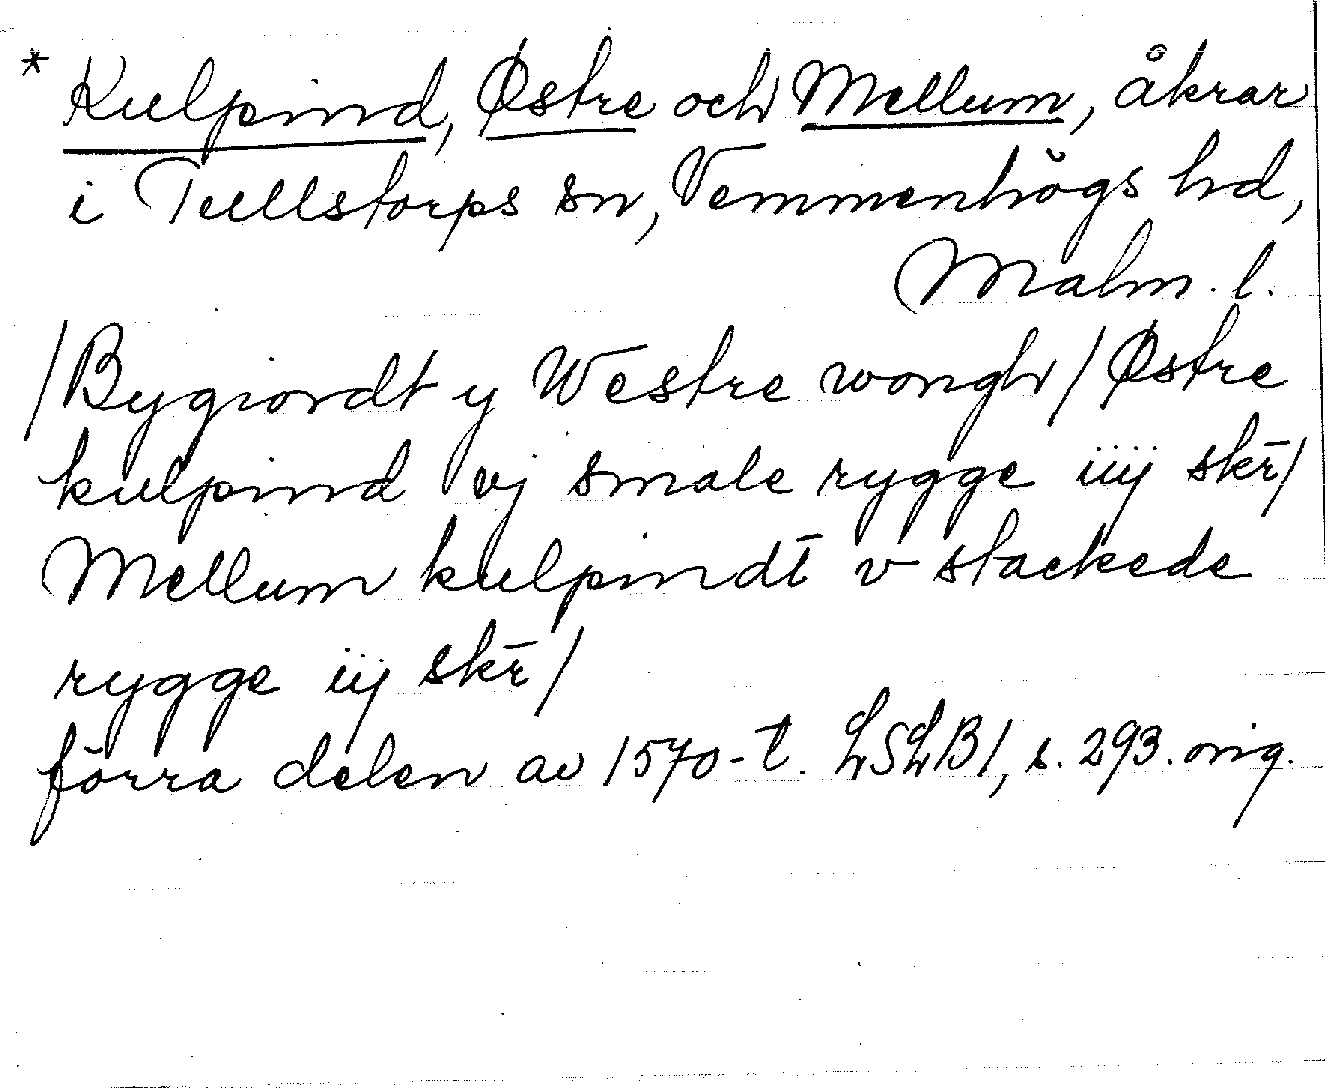 * Kulpind, Østre och Mellum, åkrar
i Tullstorps sn, Vemmenhögs hd,
Malm. l.
/Bygiordt y Westre wongh/ Østre
kulpind vj smale rygge iiij skr̄/
Mellum kulpindt̄ v stackede
rygge iij skr̄/
förra delen av 1570-t. LSLB1, s. 293. orig.